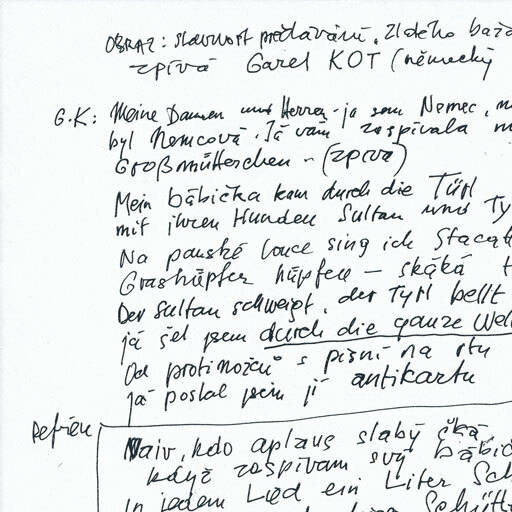 OBRAZ: slavnost předávání „Zlatého baža
zpívá Garel KOT (německý
G.K: Meine Damen und Herren - ja sem Nemec, m
byl Nemcová. Já vám zaspívala
Großmütterchen - (zpívá)
Mein bábička kam durch die Türl
mit ihren Hunden Sultan und Ty
Na panské louce sing ich Stacat
Grashüpfer hüpfen - skáká t
Der Sultan schweigt, der Tyrl bellt
já šel jsem durch die ganze Wel
Od protinožců s písní na rtu
já poslal jsem jí antikartu
Refrén:
Naiv, kdo aplaus slabý čká,
když zaspívam svý bábič
In jedem Lied ein Liter Sch